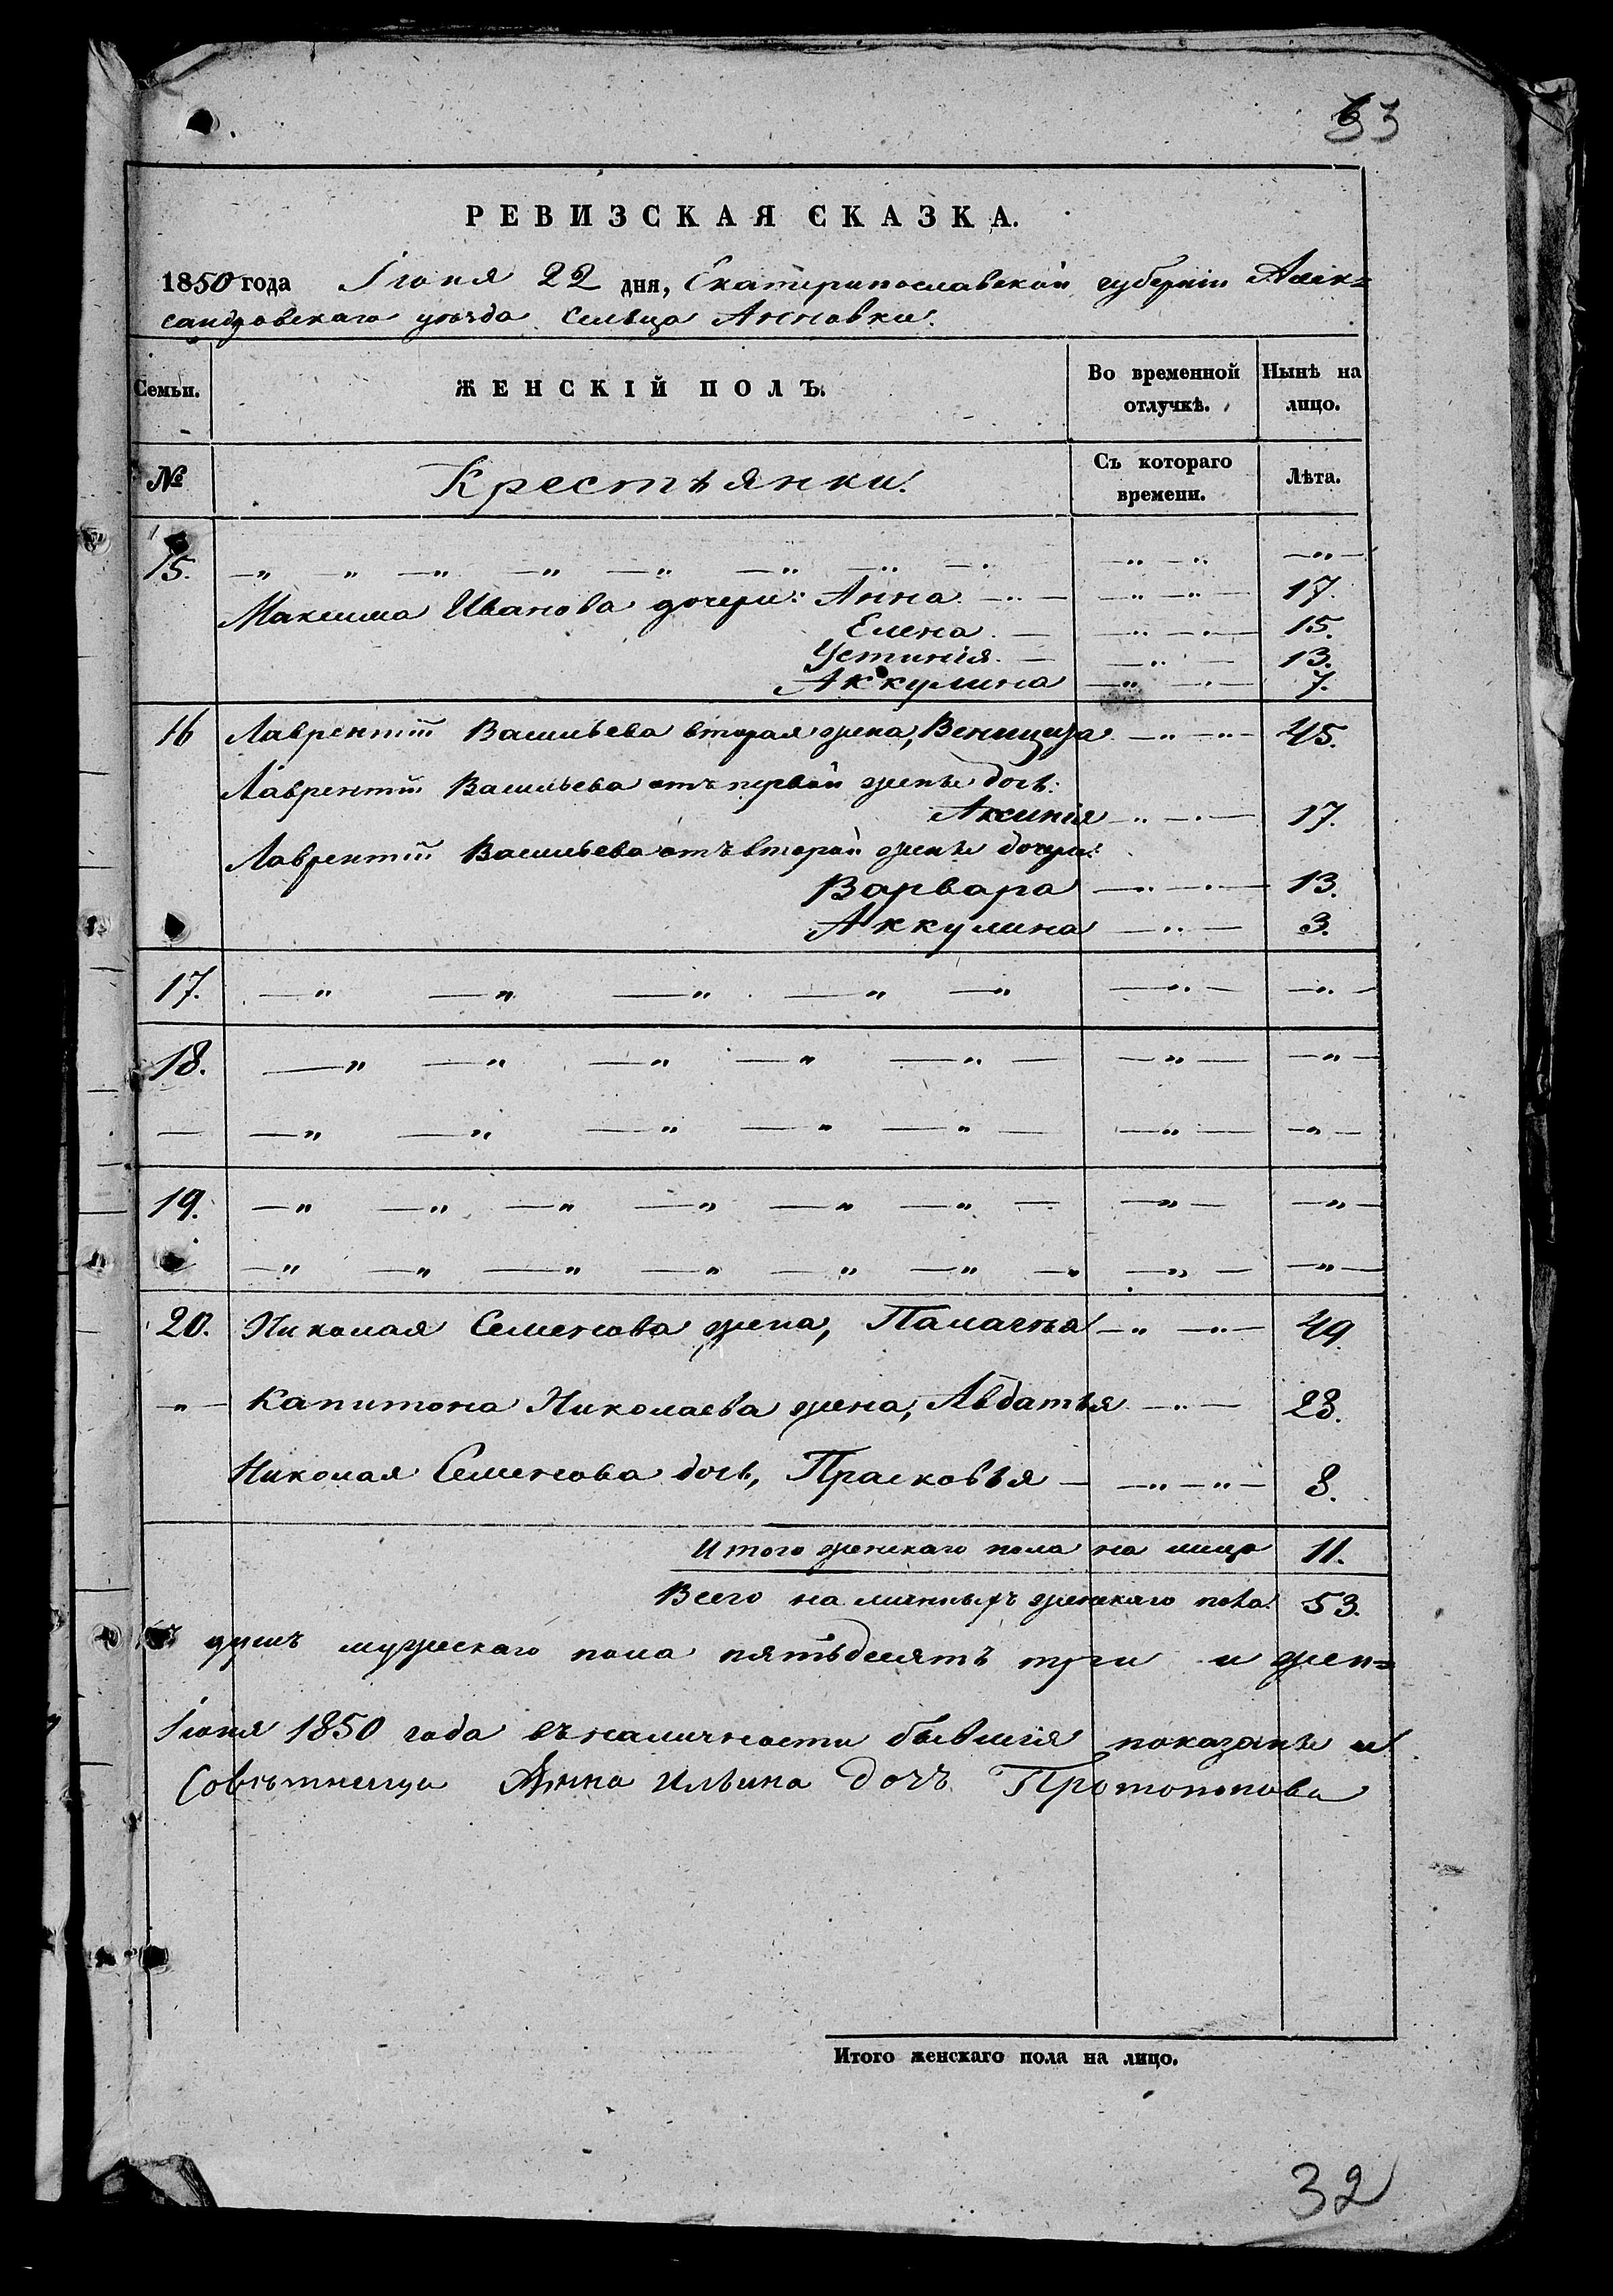 33
РЕВИЗСКАЯ СКАЗКА.
1850 года Іюня 22 дня, Екатеринославской губерніи Алек=
сандровскаго уѣзда Сельца Анновки.
Семьи.
ЖЕНСКІЙ ПОЛЪ.
Во временной отлучкѣ.
Нынѣ на лицо.
№
Крестьянки.
Съ котораго времени.
Лѣта.
15. —„ —„ —„ —„ —„ —„ —„ —„ —„— —„—
Максима Иванова дочери: Анна —„— —„—„— 17.
Елена. — —„—„— 15.
Устинія. — —„— 13.
Аккулина —„—„— 7.
16 Лаврентія Васильева вторая жена, —„—„— 45.
Лаврентія Васильева отъ первой жены дочь:
Аксинія —„—„— 17.
Лаврентія Васильева отъ второй жены дочери:
Варвара —„—„— 13.
Аккулина —„— 3.
17. —„ —„ —„ —„ —„ —„— —„—
18. —„ —„ —„ —„ —„— —„— —„—
— —„ —„ —„ —„ —„— —„— —„—
19. —„ —„ —„ —„ —„ —„— —„— —„—
—„ —„ —„ —„ —„ —„ — —„— —„—
20. Николая Семенова жена, Палагѣя —„—„— 49.
„— Капитона Николаева жена, Авдатья —„— 23.
Николая Семенова дочь, Прасковья — —„—„— 8.
Итого женскаго пола на лицо 11.
Всего на личныхъ женскаго пола 53.
душъ мужескаго пола пятьдесятъ три и жен=
Іюня 1850 года въ наличности бывшія показаны и
Совѣтница Анна Ильина дочъ Протопопова
Итого женскаго пола на лицо.
32